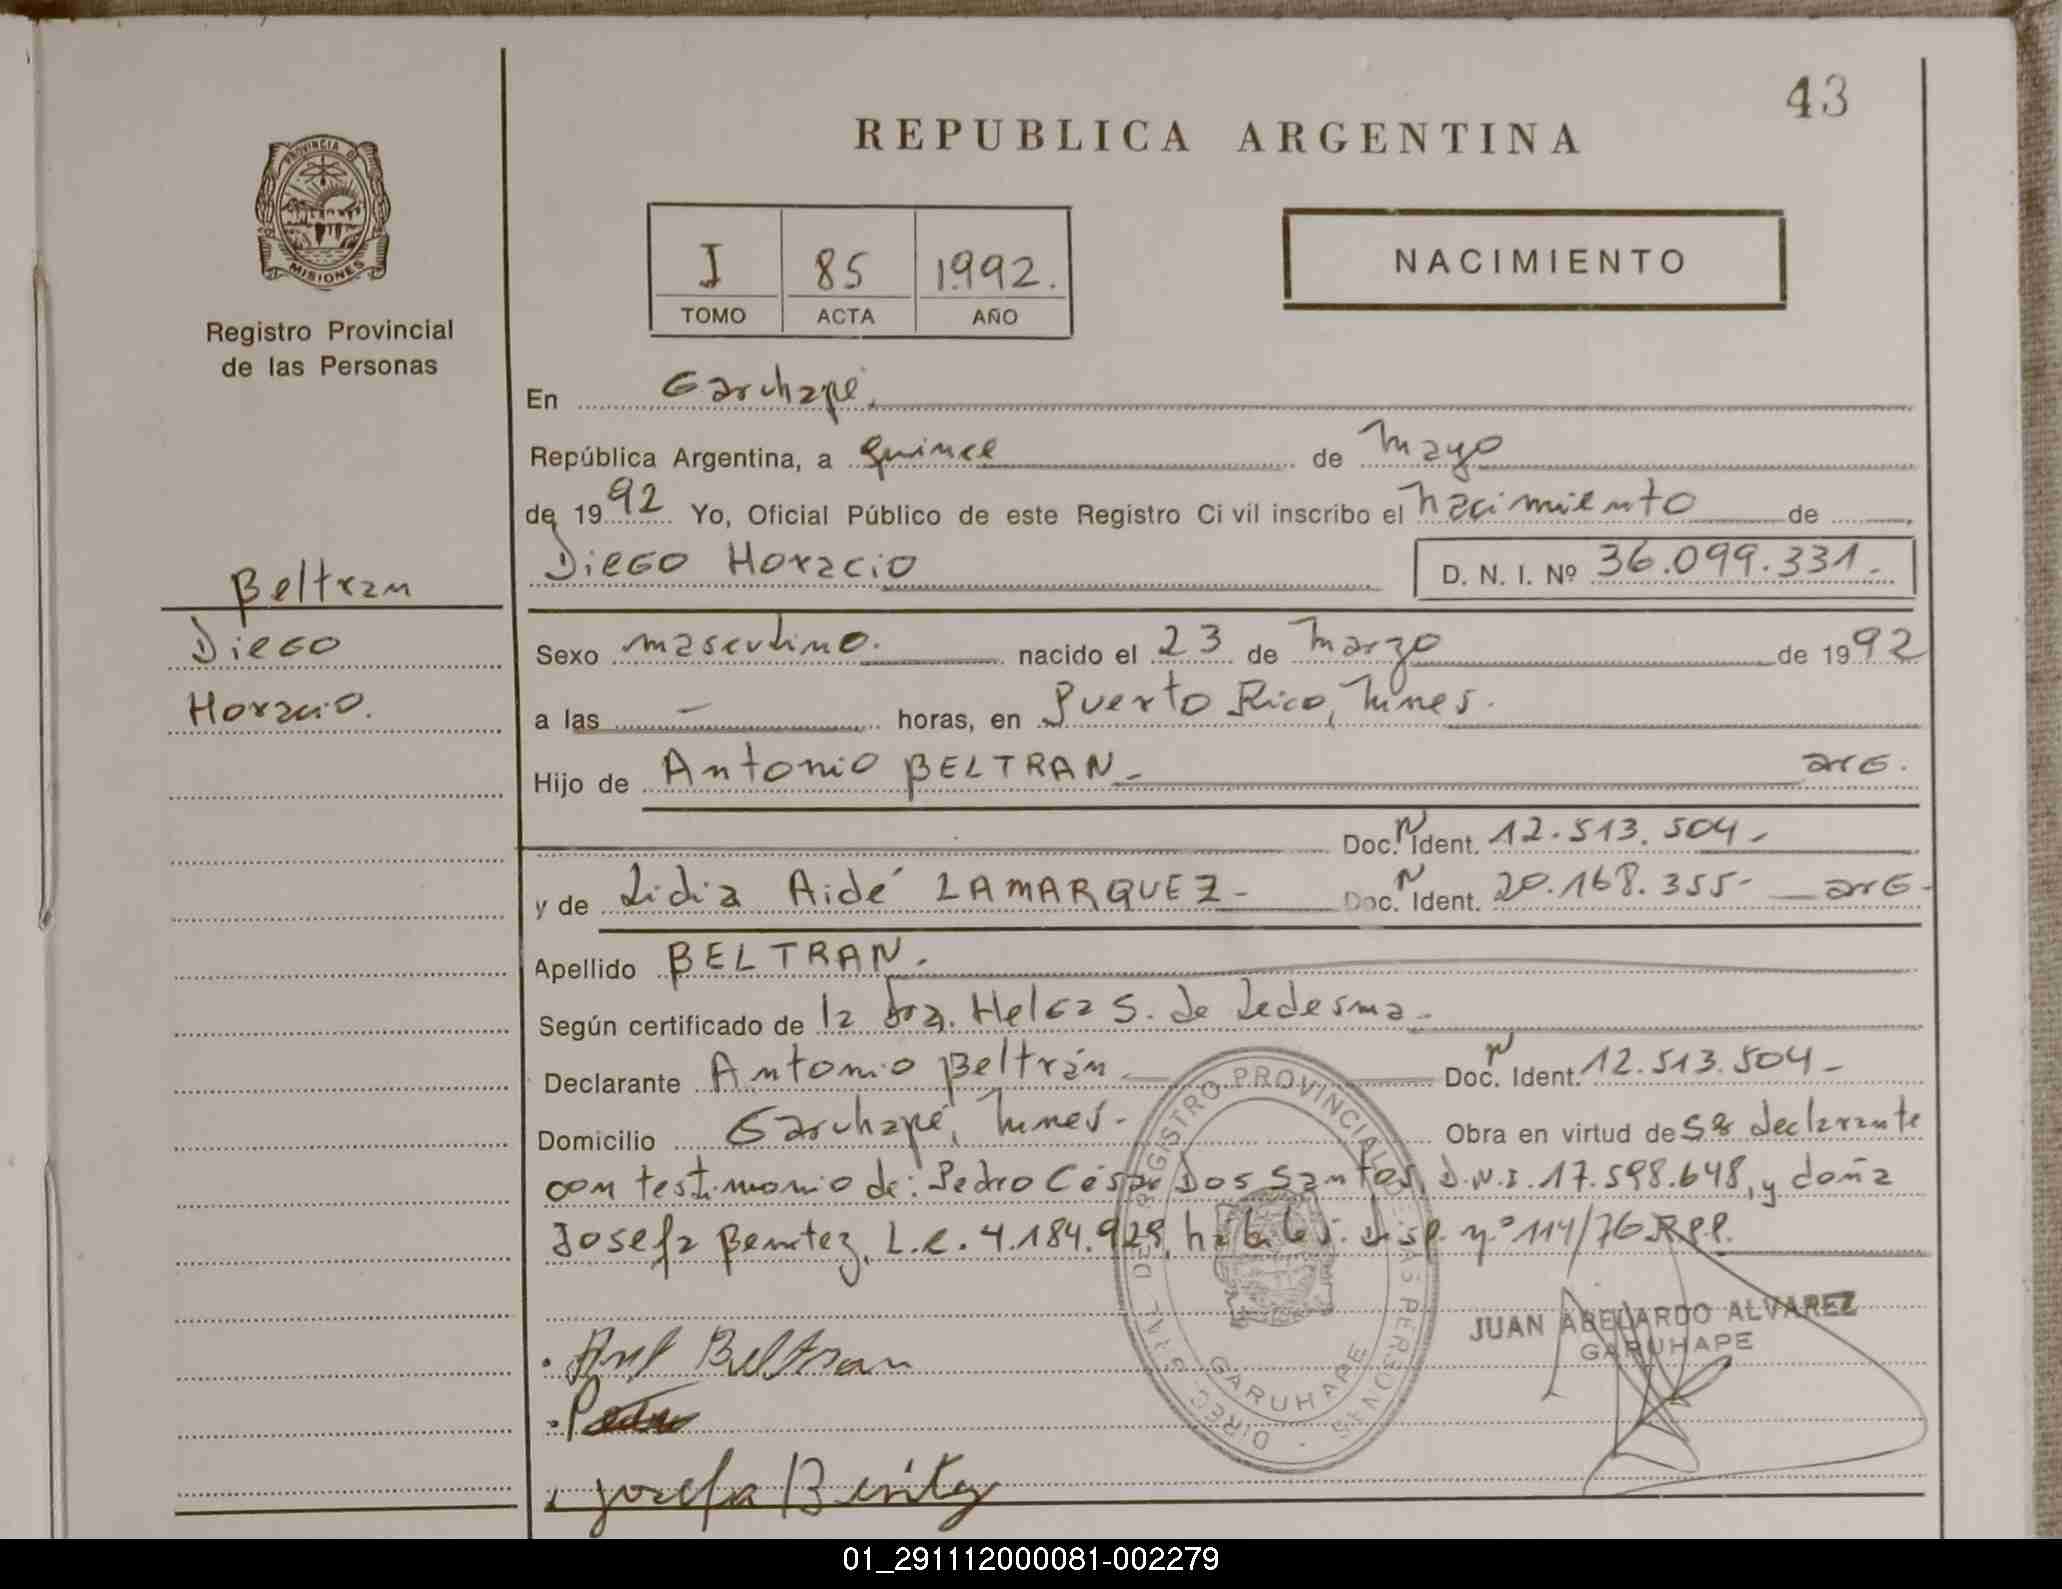 43
REPUBLICA ARGENTINA
PROVINCIA DE
MISIONES
Registro Provincial
de las Personas
I 85 1992.
TOMO ACTA AÑO
NACIMIENTO
En Garuhapé.
República Argentina, a quince de Mayo
de 1992 Yo, Oficial Público de este Registro Civil inscribo el nacimiento de
Diego Horacio D. N. I. Nº 36.099.331.-
Beltran
Diego
Horacio.
Sexo masculino. nacido el 23 de Marzo de 1992
a las - horas, en Puerto Rico, Mnes.
Hijo de Antonio BELTRAN - arg.
Doc. N Ident. 12.513.504-
y de Lidia Aidé LAMARQUEZ - Doc. N Ident. 20.168.355- arg-
Apellido BELTRAN.
Según certificado de la Dra. Helga S. de Ledesma.
Declarante Antonio Beltrán Doc. N Ident. 12.513.504-
Domicilio Garuhapé, Mnes.- Obra en virtud de declarante
con testimonio de: Pedro César Dos Santos, D.N.I. 17.598.648, y doña
Josefa Benitez, L.C. 4.184.929, hábiles. Disp. nº 114/76 R.P.P.
DIREC. GRAL. DE REGISTRO PROVINCIAL DE LAS PERSONAS
GARUHAPE
JUAN ABELARDO ALVAREZ
GARUHAPE
Beltran
Josefa Benitez
01_291112000081-002279